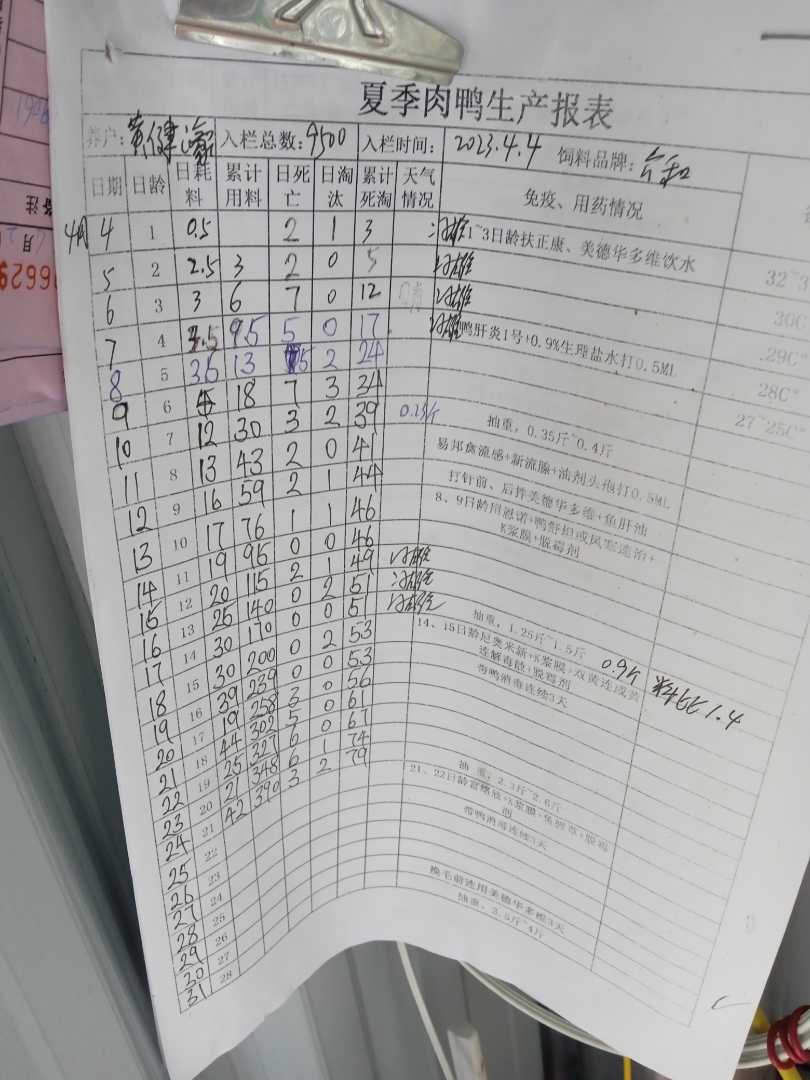 夏季肉鸭生产报表
养户: 黄健 入栏总数: 9500 入栏时间: 2023.4.4 饲料品牌: 合和
日期 日龄 日耗料 累计用料 日死亡 日淘汰 累计死淘 天气情况 免疫、用药情况
4月 4 1 0.5 2 1 3 1~3日龄扶正康、美德华多维饮水
5 2 2.5 3 2 0 5
6 3 3 6 7 0 12
7 4 3.5 9.5 5 0 17 鸭肝炎1号+0.9%生理盐水打0.5ML
8 5 3.5 13 5 2 24
9 6 18 7 3 34
10 7 12 30 3 2 39 0.25斤 抽重, 0.35斤~0.4斤
11 8 13 43 2 0 41 易邦禽流感+新流腺+油剂头孢打0.5ML
12 9 16 59 2 1 44 打针前、后拌美德华多维+鱼肝油
13 10 17 76 1 1 46 8、9日龄用恩诺+鸭舒坦或风寒速治+K浆膜+脱霉剂
14 11 19 95 0 0 46
15 12 20 115 2 1 49
16 13 25 140 0 2 51
17 14 30 170 0 0 51 抽重, 1.25斤~1.5斤 0.9斤
18 15 30 200 0 2 53 14、15日龄尼奥米新+K浆膜+双黄连或黄连解毒散+脱霉剂 料比1.4
19 16 39 239 0 0 53 带鸭消毒连续3天
20 17 19 258 3 0 56
21 18 44 302 5 0 61
22 19 25 327 6 0 67
23 20 21 348 6 1 74 抽 重, 2.3斤~2.6斤
24 21 42 390 3 2 79 21、22日龄
25 22 带鸭消毒连续3天
26 23
27 24
28 25 换毛前连用美德华多维3天
29 26 抽重, 3.5斤~4斤
30 27
31 28
32~3
30C
29C°
28C°
27~25C°